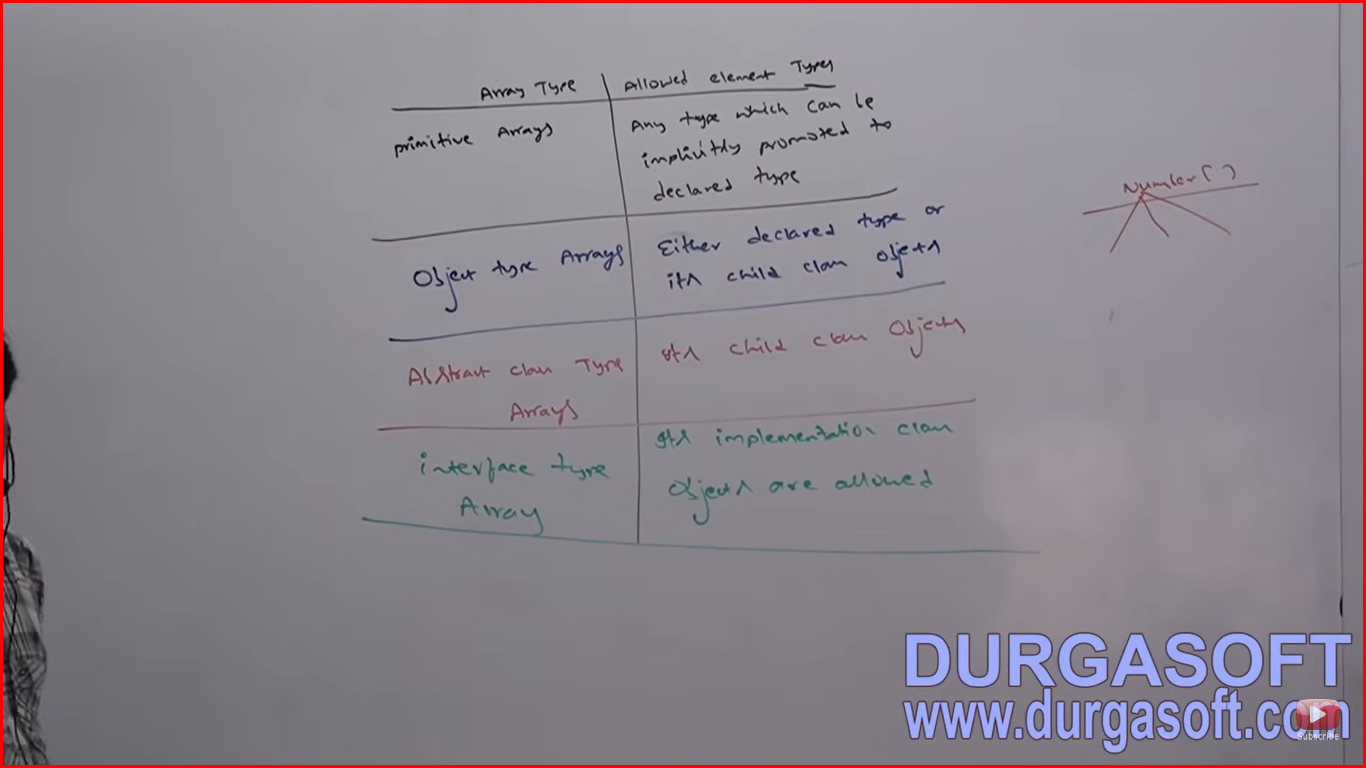 Array Type
Allowed element Types
primitive Arrays
Any type which can be
implicitly promoted to
declared type
Object type Arrays
Either declared type or
its child class objects
Abstract class Type
Arrays
its child class Objects
interface type
Array
its implementation class
Objects are allowed
Number[ ]
DURGASOFT
www.durgasoft.com
Subscribe